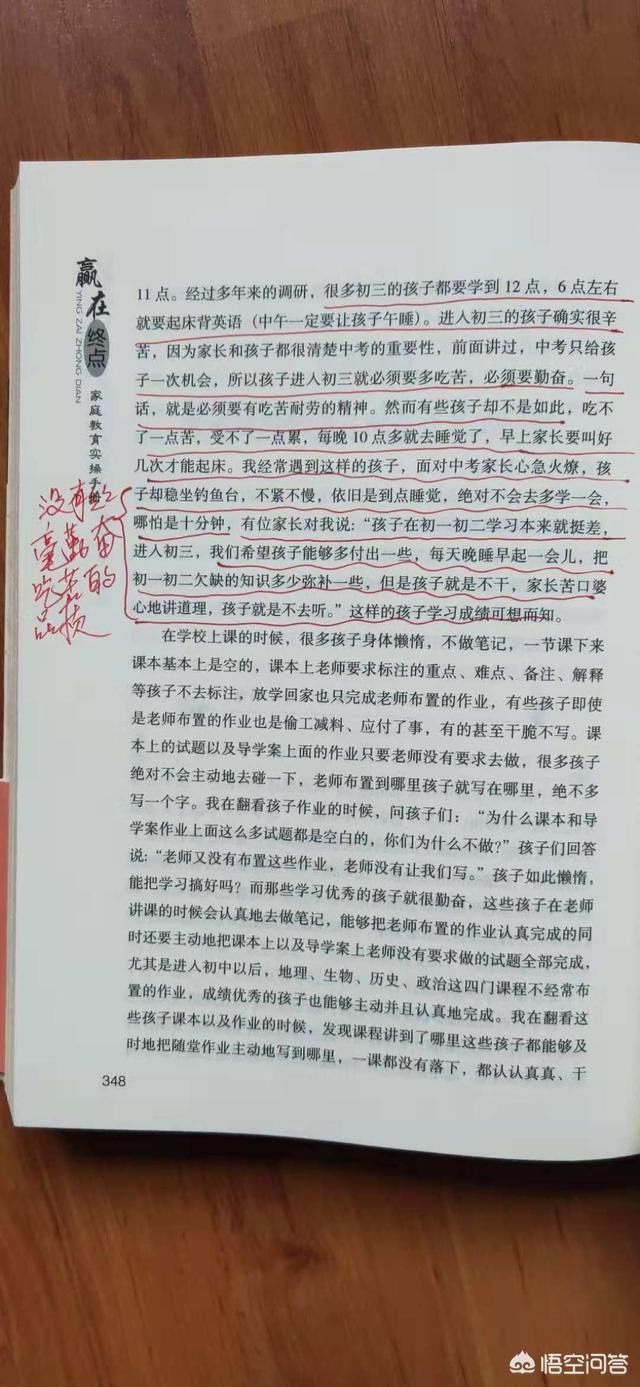 赢在终点
YING ZAI ZHONG DIAN
家庭教育实操手册
11点。经过多年来的调研，很多初三的孩子都要学到12点，6点左右
就要起床背英语（中午一定要让孩子午睡）。进入初三的孩子确实很辛
苦，因为家长和孩子都很清楚中考的重要性，前面讲过，中考只给孩
子一次机会，所以孩子进入初三就必须要多吃苦，必须要勤奋。一句
话，就是必须要有吃苦耐劳的精神。然而有些孩子却不是如此，吃不
了一点苦，受不了一点累，每晚10点多就去睡觉了，早上家长要叫好
几次才能起床。我经常遇到这样的孩子，面对中考家长心急火燎，孩
子却稳坐钓鱼台，不紧不慢，依旧是到点睡觉，绝对不会去多学一会，
哪怕是十分钟，有位家长对我说：“孩子在初一初二学习本来就挺差，
进入初三，我们希望孩子能够多付出一些，每天晚睡早起一会儿，把
初一初二欠缺的知识多少弥补一些，但是孩子就是不干，家长苦口婆
心地讲道理，孩子就是不去听。”这样的孩子学习成绩可想而知。
没有丝
毫勤奋
吃苦的
品质
在学校上课的时候，很多孩子身体懒惰，不做笔记，一节课下来
课本基本上是空的，课本上老师要求标注的重点、难点、备注、解释
等孩子不去标注，放学回家也只完成老师布置的作业，有些孩子即使
是老师布置的作业也是偷工减料、应付了事，有的甚至干脆不写。课
本上的试题以及导学案上面的作业只要老师没有要求去做，很多孩子
绝对不会主动地去碰一下，老师布置到哪里孩子就写在哪里，绝不多
写一个字。我在翻看孩子作业的时候，问孩子们：“为什么课本和导
学案作业上面这么多试题都是空白的，你们为什么不做？”孩子们回答
说：“老师又没有布置这些作业，老师没有让我们写。”孩子如此懒惰，
能把学习搞好吗？而那些学习优秀的孩子就很勤奋，这些孩子在老师
讲课的时候会认真地去做笔记，能够把老师布置的作业认真完成的同
时还要主动地把课本上以及导学案上老师没有要求做的试题全部完成，
尤其是进入初中以后，地理、生物、历史、政治这四门课程不经常布
置的作业，成绩优秀的孩子也能够主动并且认真地完成。我在翻看这
些孩子课本以及作业的时候，发现课程讲到了哪里这些孩子都能够及
时地把随堂作业主动地写到哪里，一课都没有落下，都认认真真、干
348
悟空问答